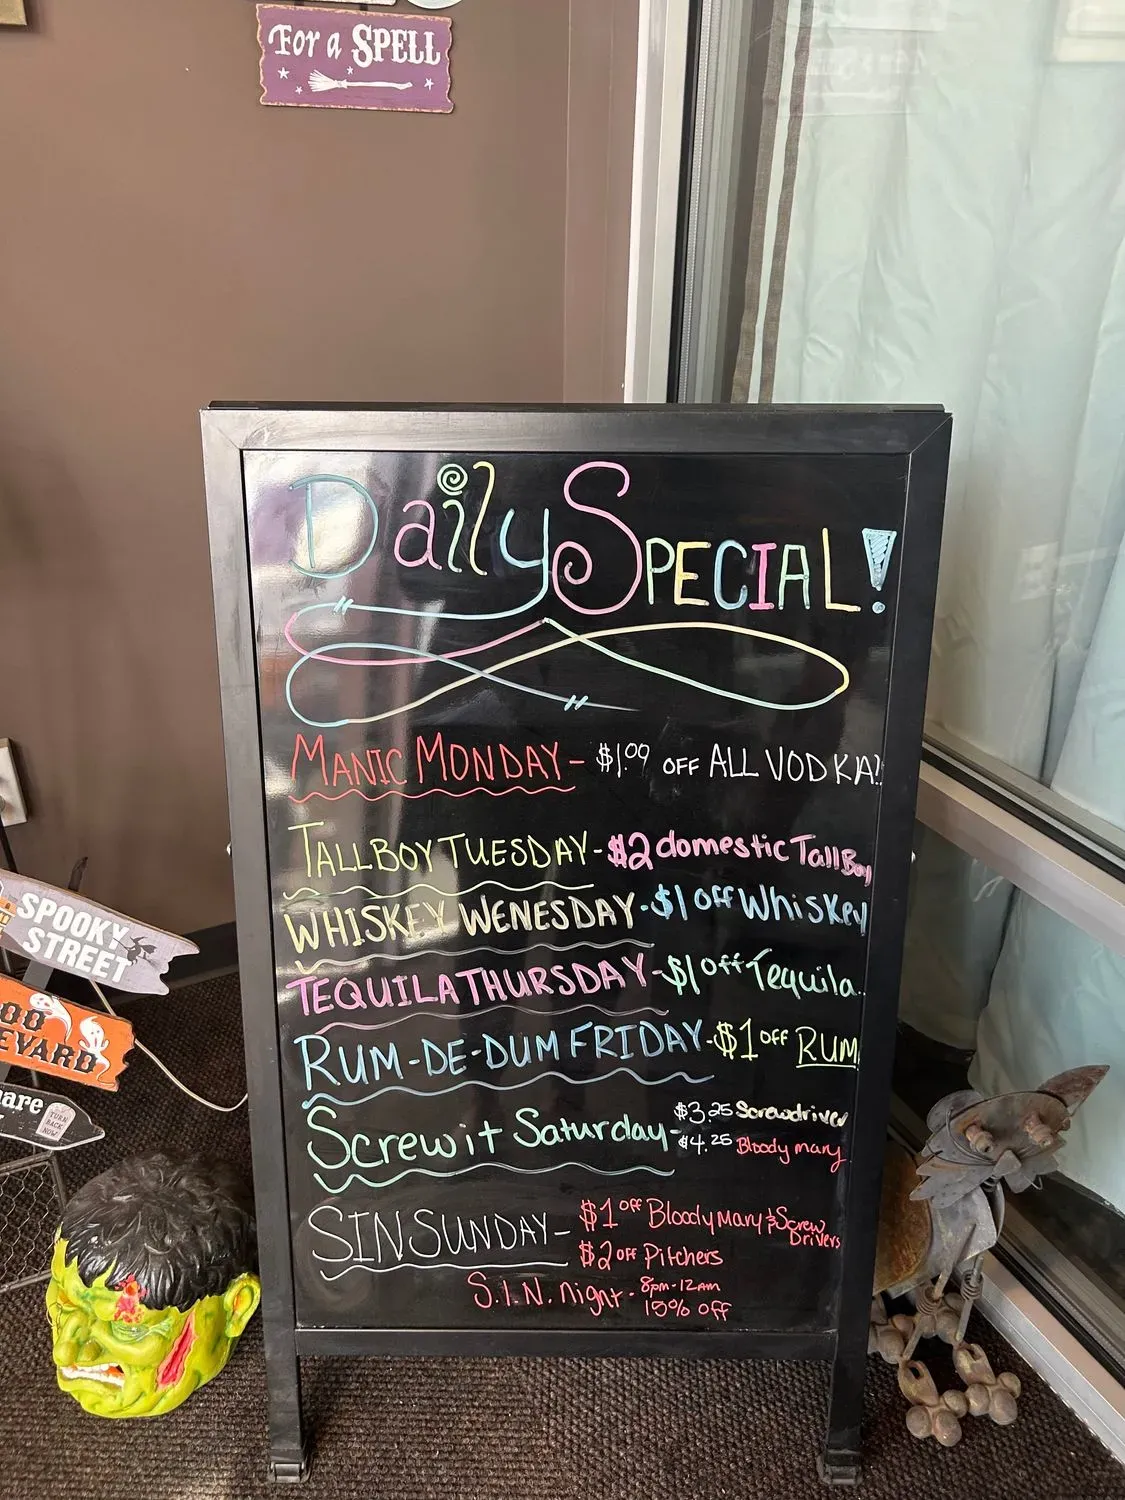 For a SPELL
Daily SPECIAL!
MANIC MONDAY - $1.00 OFF ALL VODKA!
TALLBOY TUESDAY - $2 domestic TallBoy
WHISKEY WENESDAY - $1 off Whiskey
TEQUILA THURSDAY - $1 off Tequila
RUM-DE-DUM FRIDAY - $1 off RUM
Screw it Saturday - $3.25 Screwdriver
$4.25 Bloody mary
SIN SUNDAY - $1 off Bloody Mary & Screw Drivers
$2 OFF Pitchers
S.I.N. night - 8pm-12am
15% off
SPOOKY
STREET
EVARD
TURN
BACK
NOW